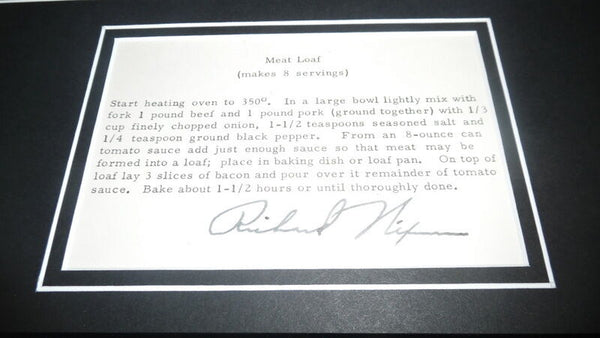 Meat Loaf
(makes 8 servings)
Start heating oven to 350º. In a large bowl lightly mix with
fork 1 pound beef and 1 pound pork (ground together) with 1/3
cup finely chopped onion, 1-1/2 teaspoons seasoned salt and
1/4 teaspoon ground black pepper. From an 8-ounce can
tomato sauce add just enough sauce so that meat may be
formed into a loaf; place in baking dish or loaf pan. On top of
loaf lay 3 slices of bacon and pour over it remainder of tomato
sauce. Bake about 1-1/2 hours or until thoroughly done.
Richard Nixon